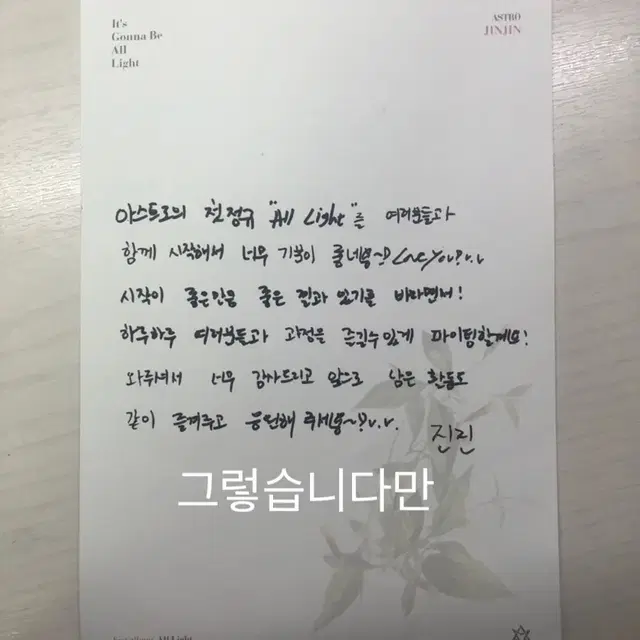 It's
Gonna Be
All
Light
ASTRO
JINJIN
아스트로의 첫 정규 "All Light"를 여러분들과
함께 시작해서 너무 기분이 좋네용~? Love You?v.v
시작이 좋은만큼 좋은 결과 있기를 바라면서!
하루하루 여러분들과 과정을 즐길수있게 파이팅할게요!
와주셔서 너무 감사드리고 앞으로 남은 활동도
같이 즐겨주고 응원해 주세용~?v.v.
진진
그렇습니다만
All Light